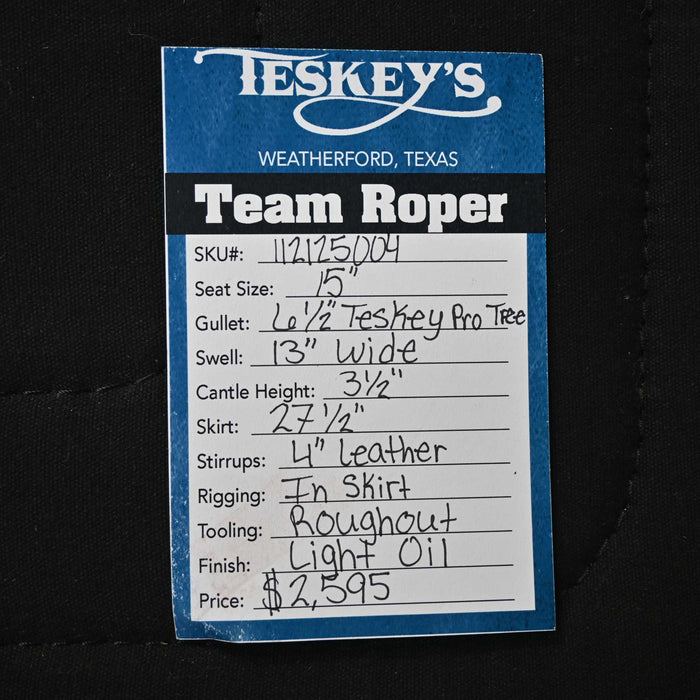 TESKEY'S
WEATHERFORD, TEXAS
Team Roper
SKU#: 112125004
Seat Size: 15"
Gullet: 6 1/2" Teskey Pro Tree
Swell: 13" wide
Cantle Height: 3 1/2"
Skirt: 27 1/2"
Stirrups: 4" leather
Rigging: In Skirt
Tooling: Roughout
Finish: Light Oil
Price: $2,595